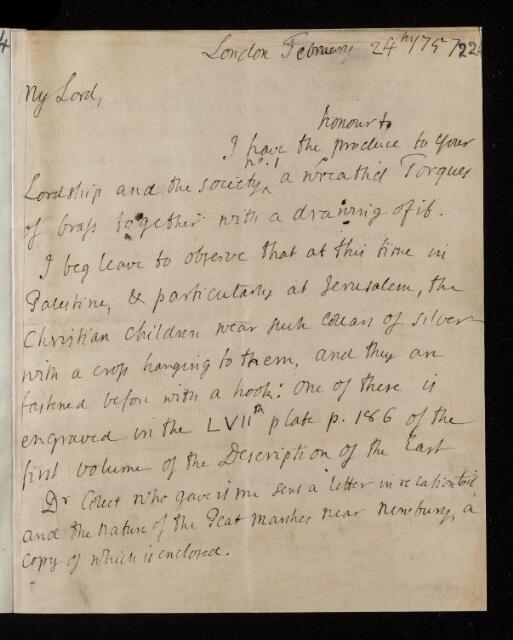 London February 24th 1757
224
My Lord,
honour to
I have the produce to your
no. 1
Lordship and the society ^ a wreath'd Torques
of brass together with a drawing of it.
I beg leave to observe that at this time in
Palestine, & particularly at Jerusalem, the
Christian children wear such collars of silver
with a cross hanging to them, and they are
fastened before with a hook: one of these is
engraved in the LVIIth plate p. 186 of the
first volume of the Description of the East
Dr Collet who gave it me sent a letter in relation to it
and the nature of the Peat marshes near Newbury, a
copy of which is enclosed.